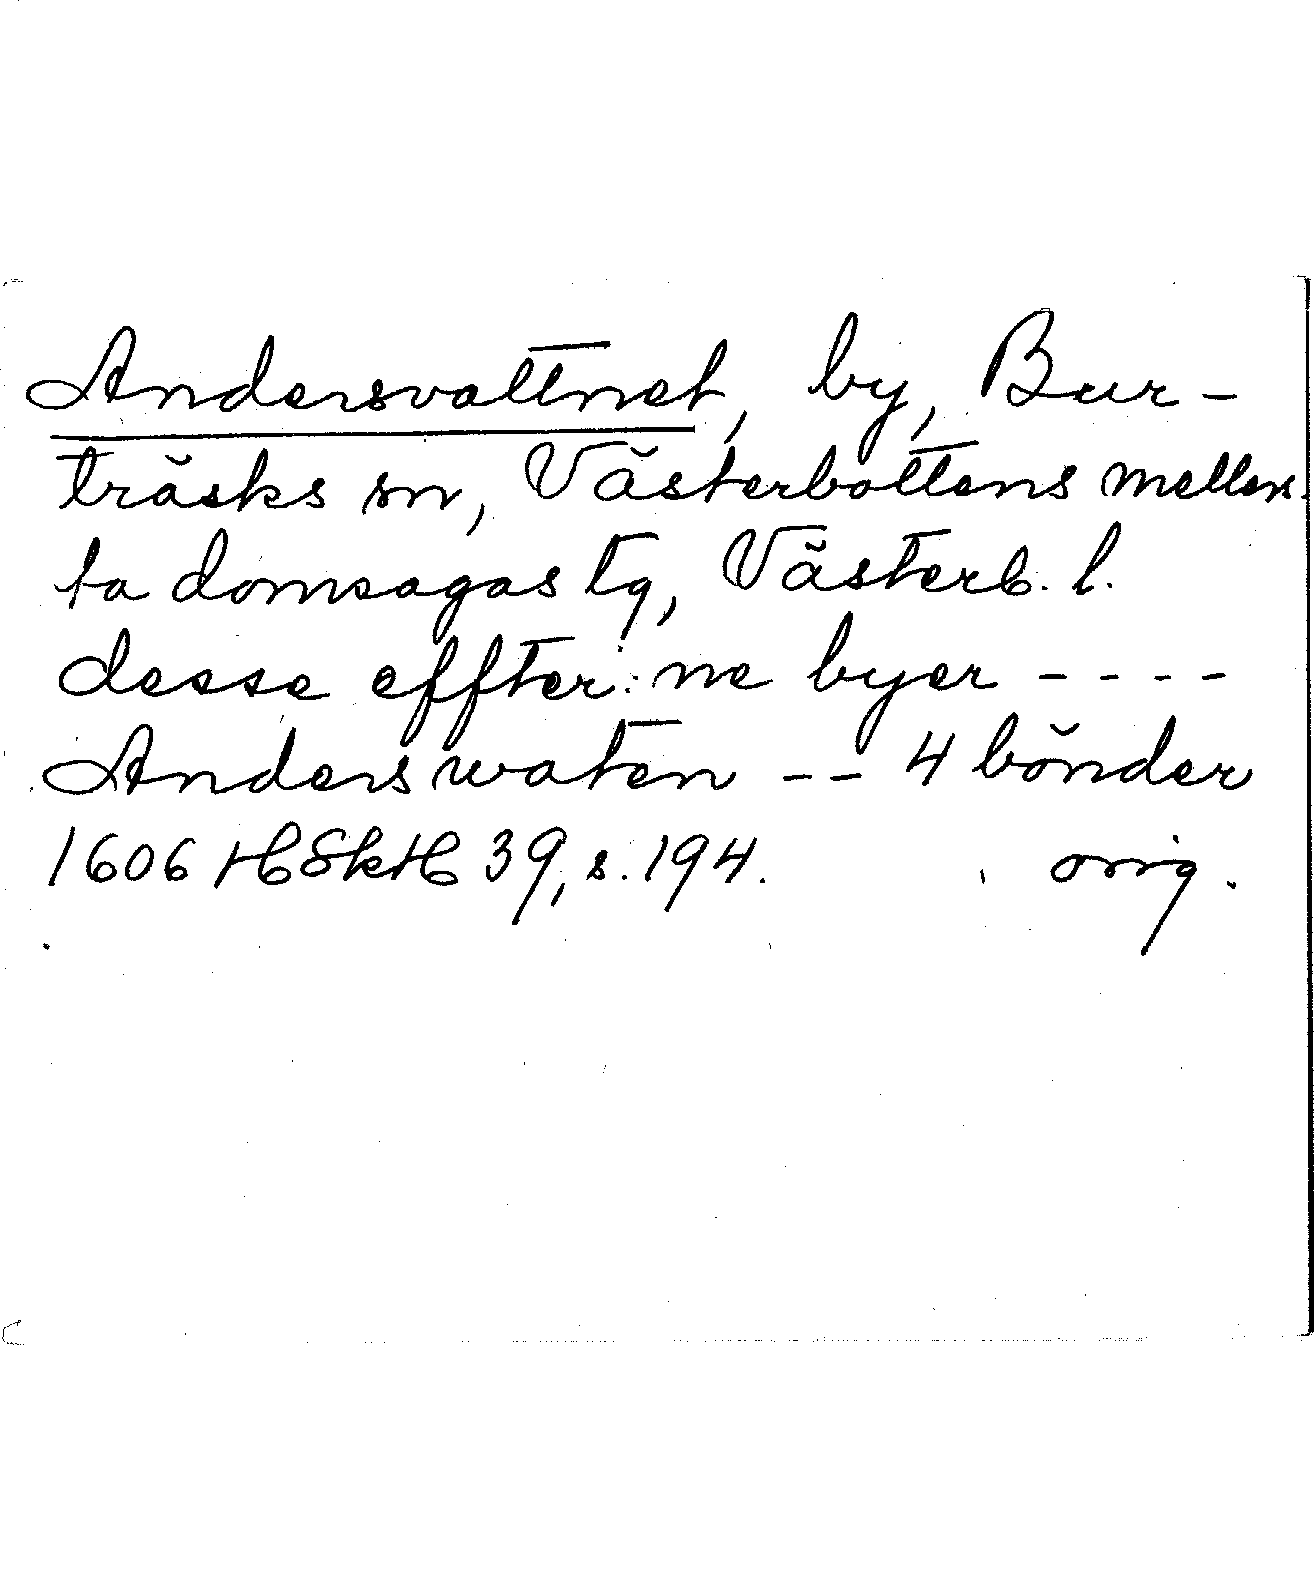 Andersvattnet, by, Bur-
träsks sn, Västerbottens mellers-
ta domsagas tg, Västerb. l.
desse effter:ne byer - - - -
Anders waten - - 4 bönder
1606 HSkH 39, s. 194. orig.